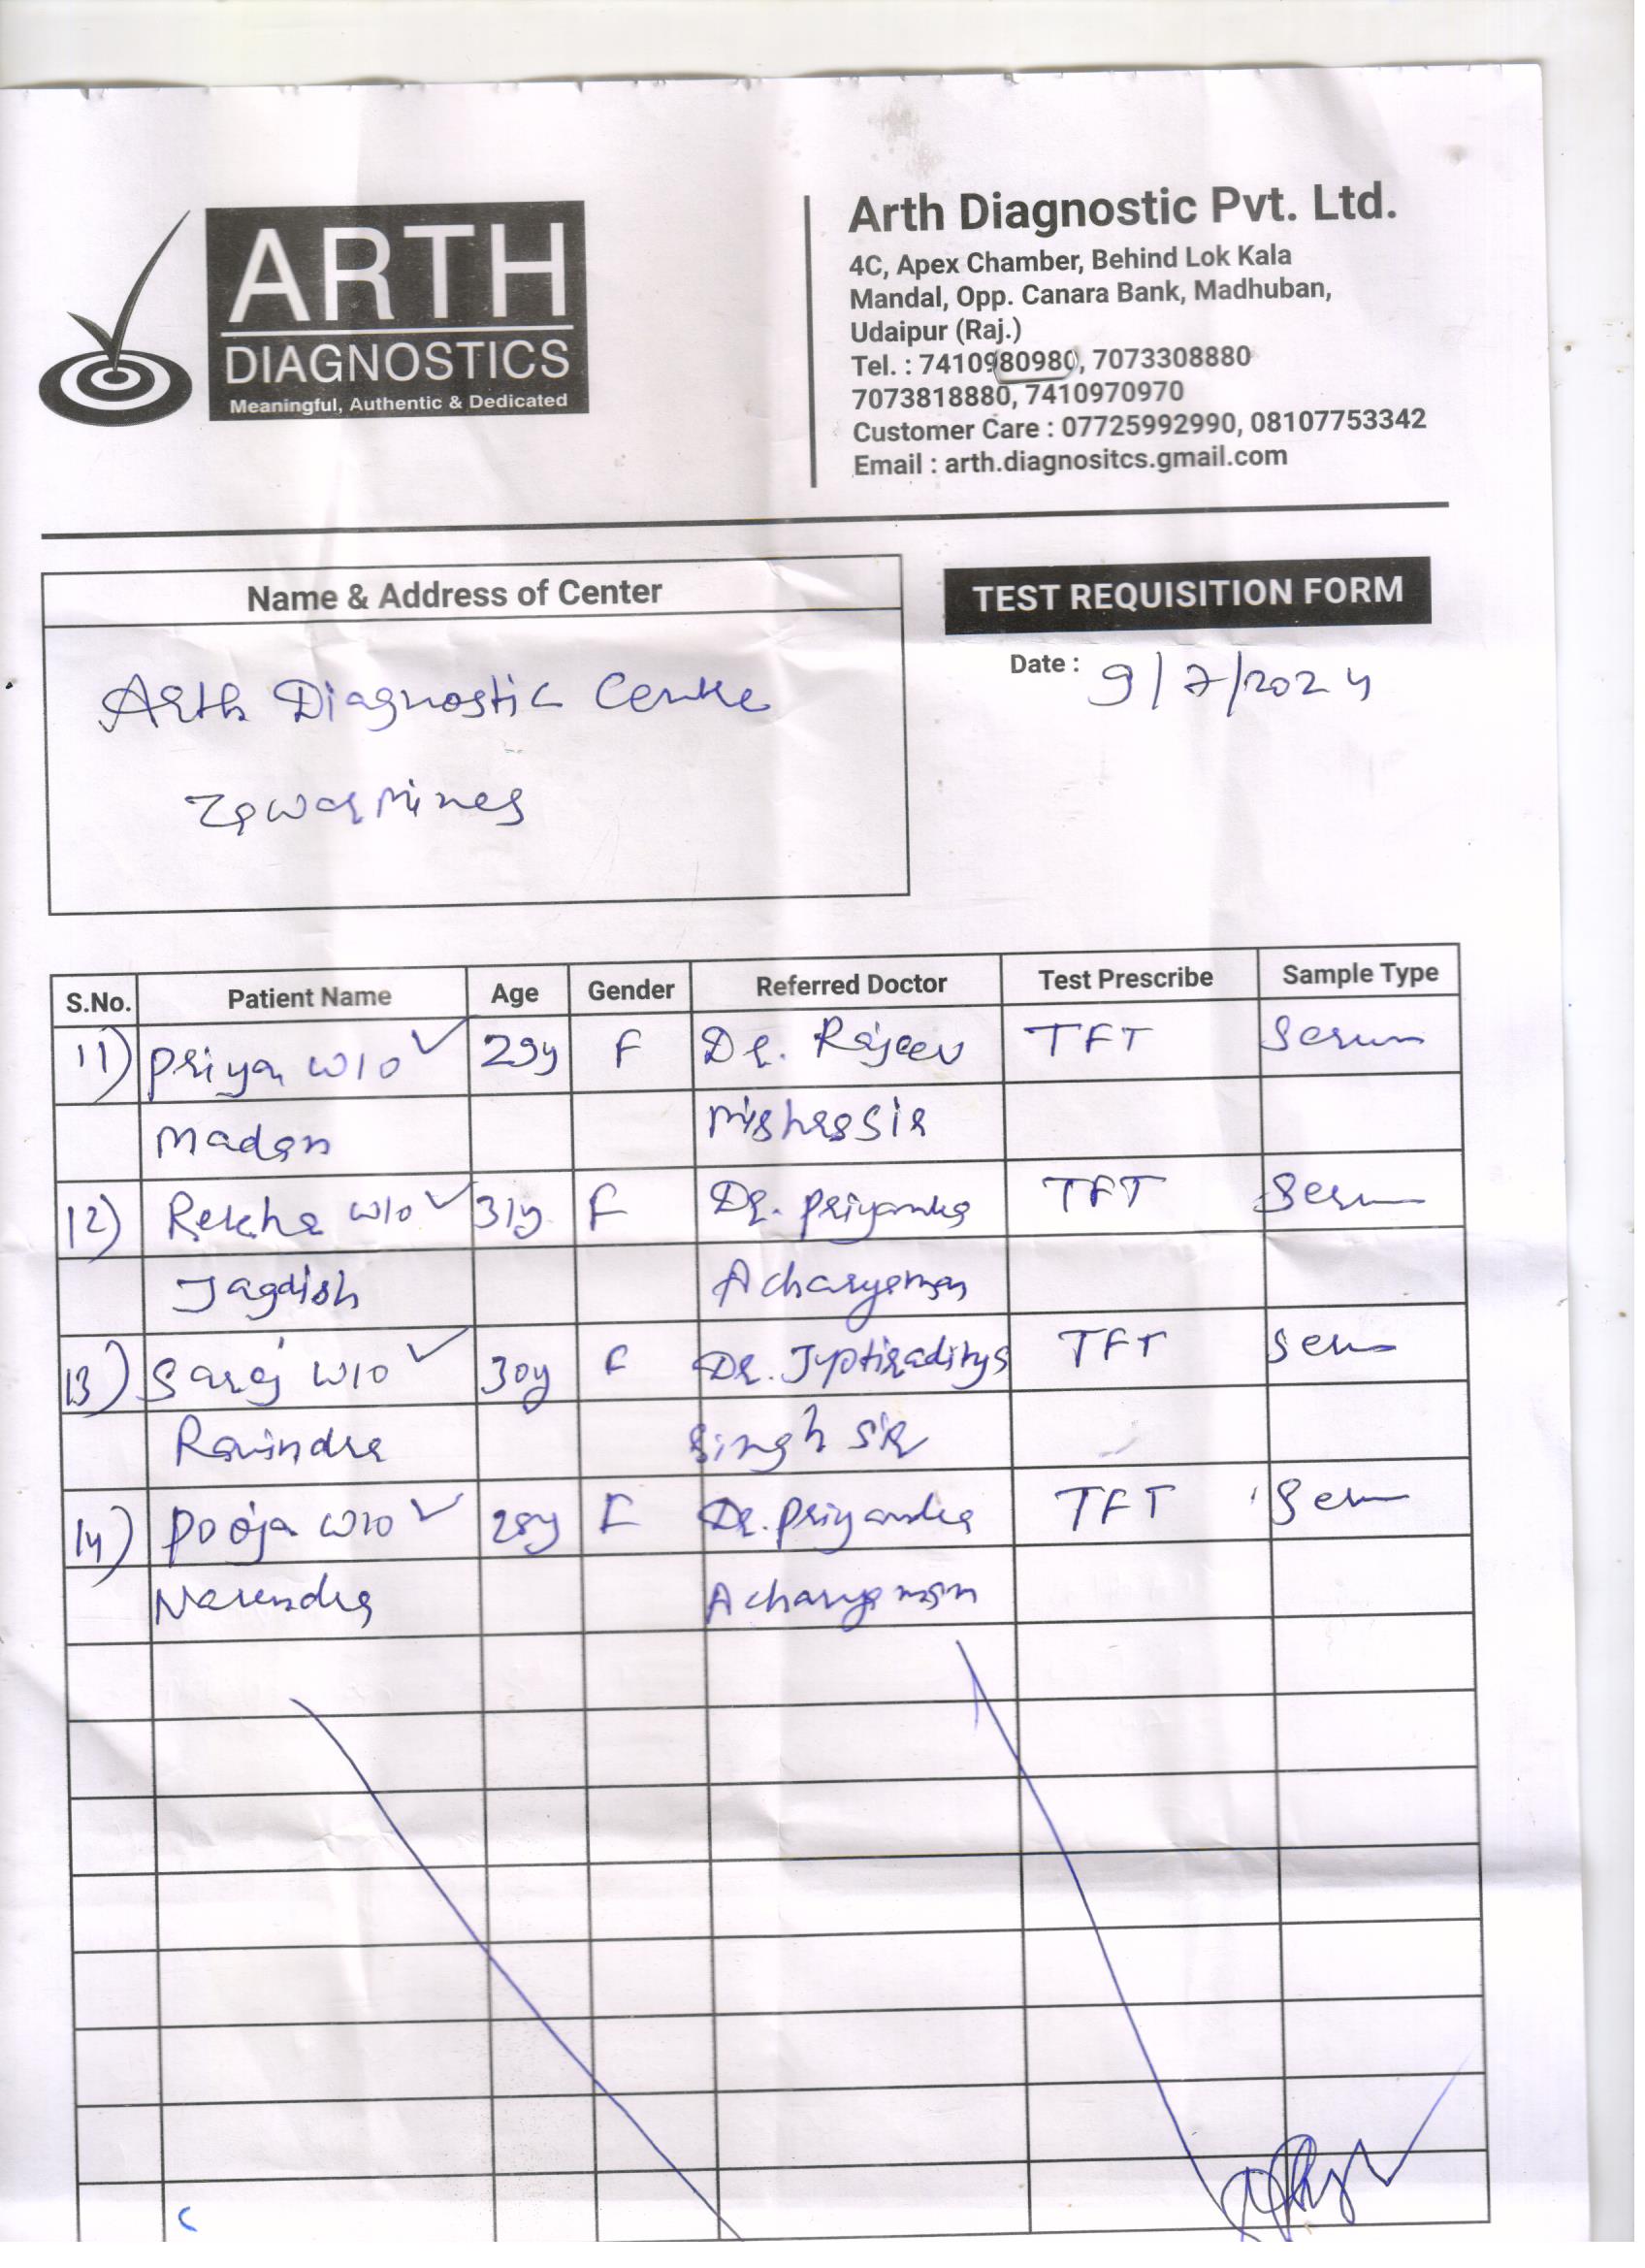 ARTH
DIAGNOSTICS
Meaningful, Authentic & Dedicated
Arth Diagnostic Pvt. Ltd.
4C, Apex Chamber, Behind Lok Kala
Mandal, Opp. Canara Bank, Madhuban,
Udaipur (Raj.)
Tel. : 7410980980, 7073308880
7073818880, 7410970970
Customer Care : 07725992990, 08107753342
Email : arth.diagnositcs.gmail.com
Name & Address of Center
Arth Diagnostic Centre
Zawar Mines
TEST REQUISITION FORM
Date : 9/7/2024
S.No. Patient Name Age Gender Referred Doctor Test Prescribe Sample Type
11) Priya W/o ✓ 29y F Dr. Rajeev TFT Serum
Madan Mishra Sir
12) Rekha W/o ✓ 31y F Dr. Priyanka TFT Serum
Jagdish Acharya mam
13) Saroj W/o ✓ 30y F Dr. Jyotiraditya TFT Serum
Ravindra Singh Sir
14) Pooja W/o ✓ 28y F Dr. Priyanka TFT Serum
Narendra Acharya mam